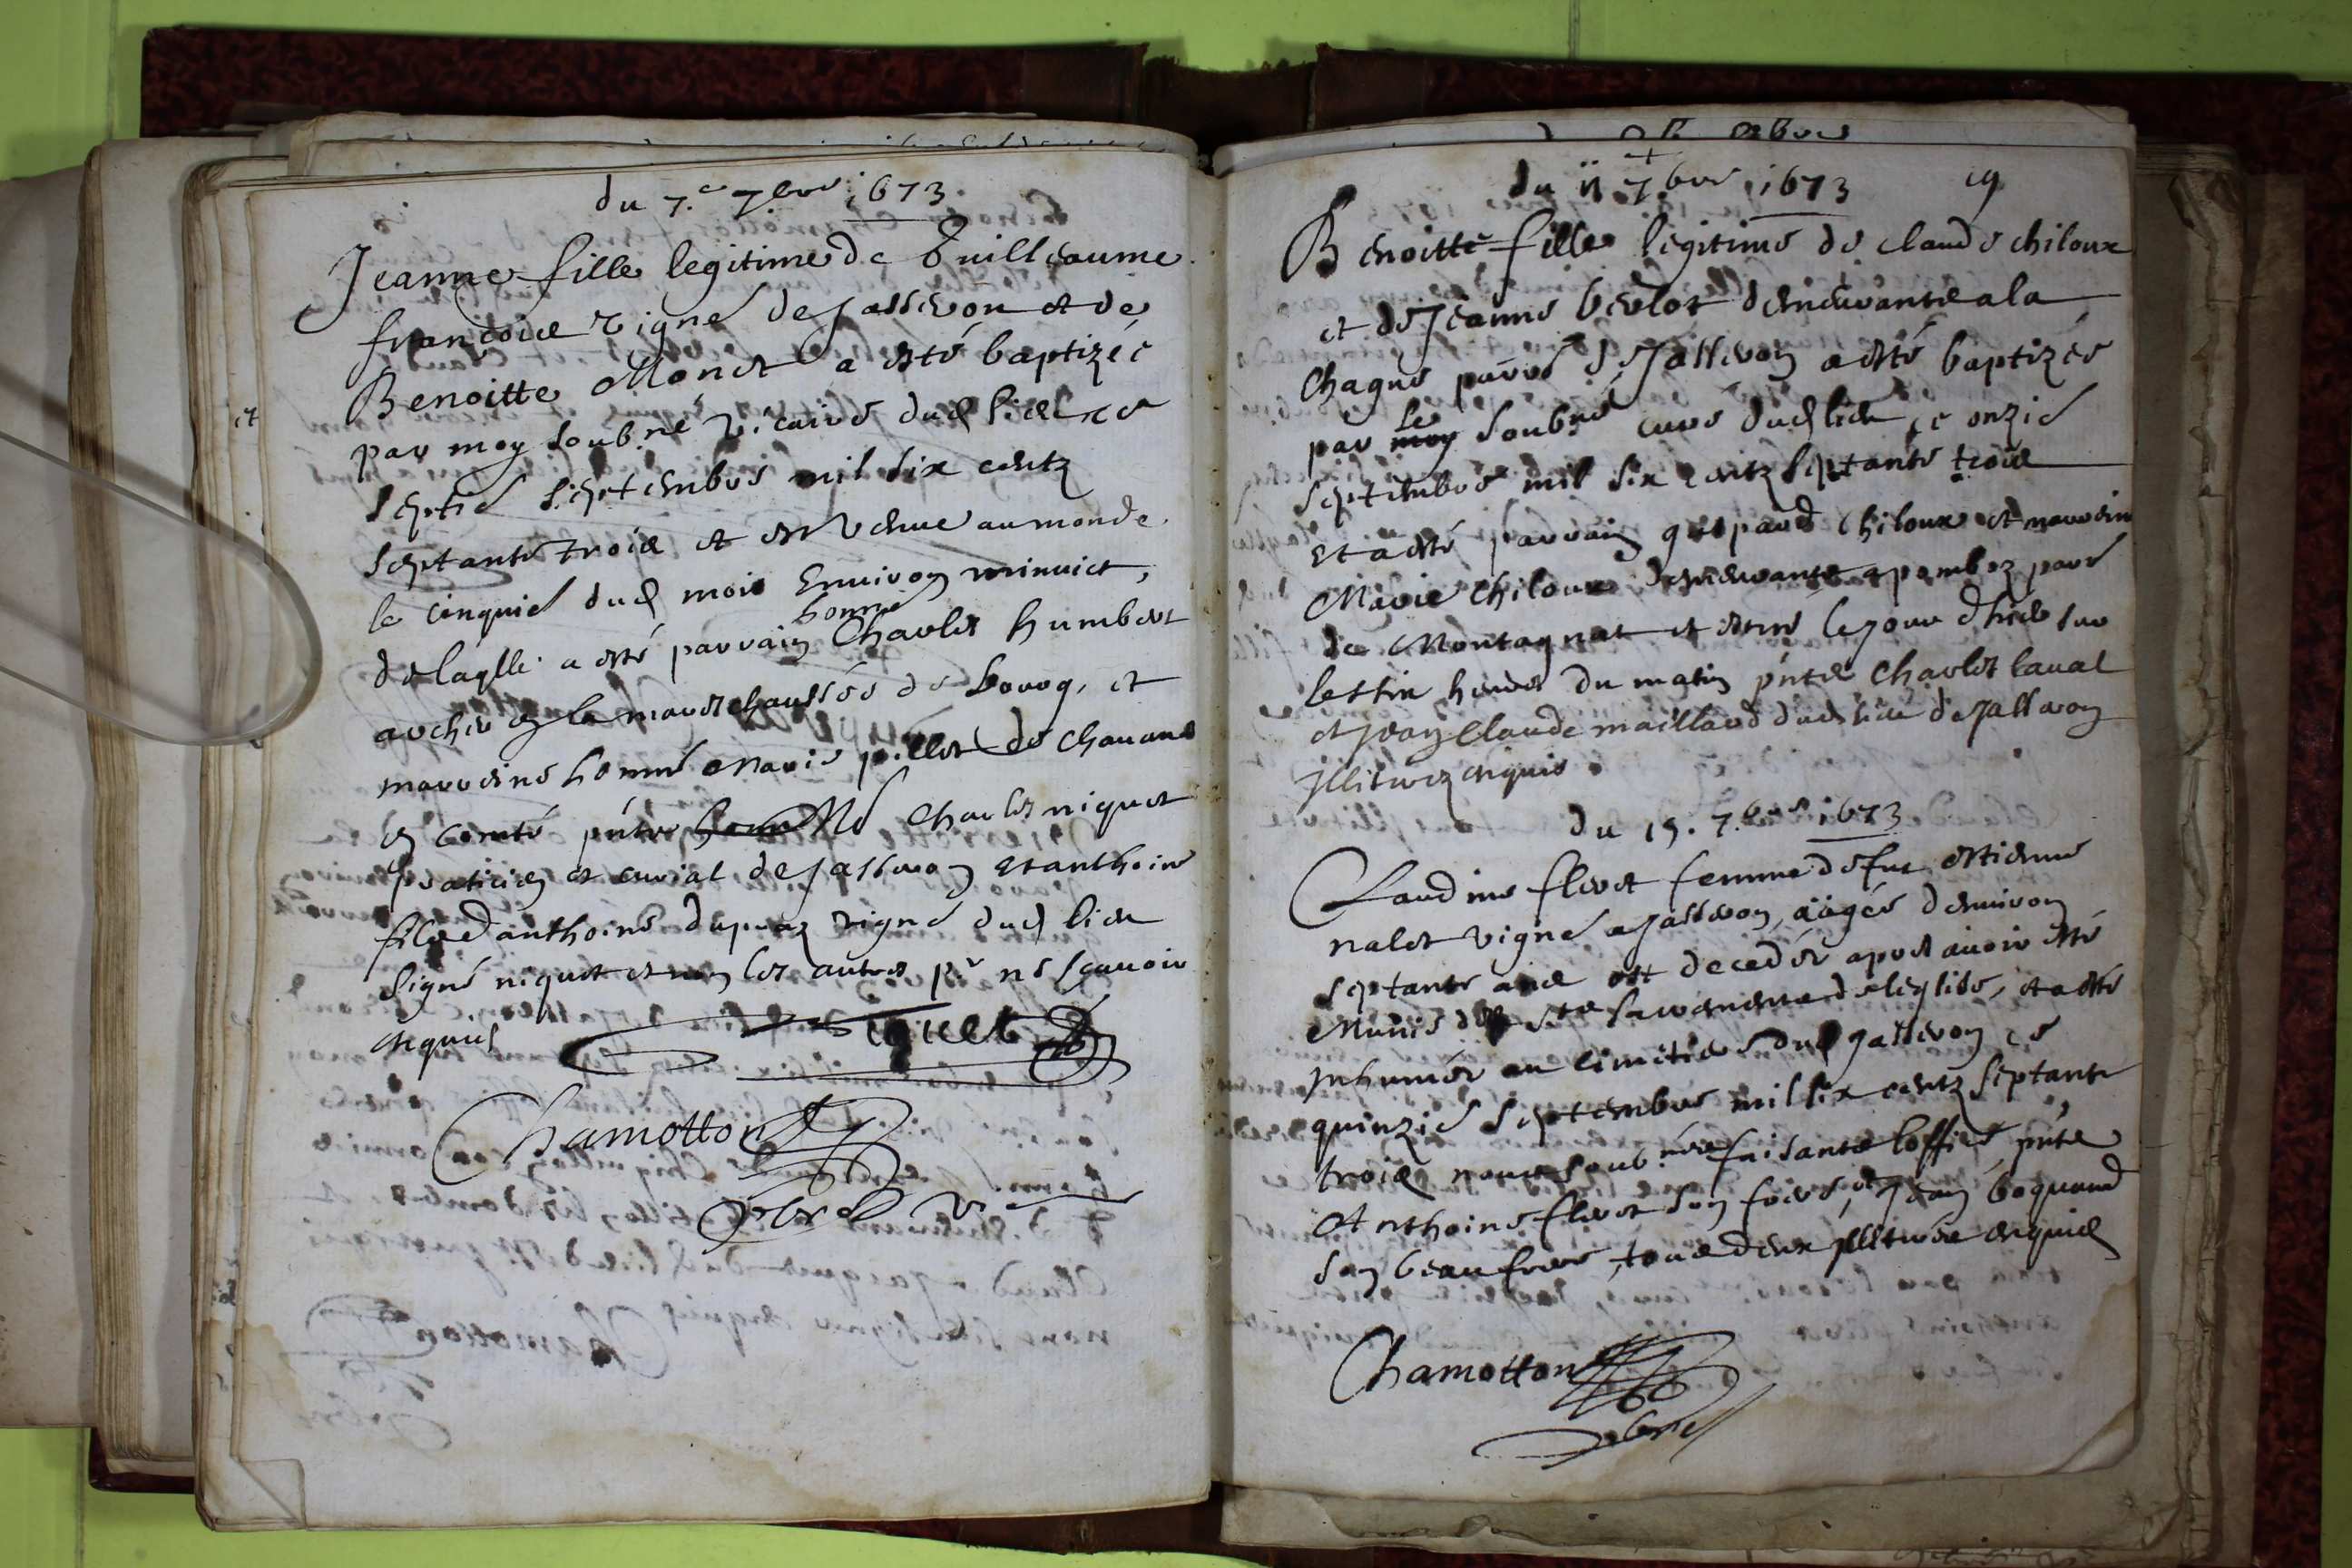 du 7.e 7.bre 1673
Jeanne fille legitime de Guilleaume
francoix vigne de Jasseron et de
Benoitte Monet a esté baptizée
par moy soub.né vicaire dud lieu ce
septie septembre mil six centz
septante troix et est venue au monde
le cinquie dud mois Environ minuict,
de laqlle a esté parrain honne Charles humbert
archer en la mareschaussée de bourg, et
marreine honne Marie pillot de chauane
en comté pnts Me Charles niquet
praticien et curial de Jasseron et anthoine
filz d'anthoine dupuaz vigne dud lieu
signé niquet et non les autres pr ne scauoir
enquis
Niquet
Chamotton
et
du 11 7.bre 1673 19
Benoitte fille legitime de claude chiloux
et de Jeanne berlot demeurants a la
Chagne parre de Jasseron a esté baptizée
par le soubné curé dud lieu ce onzie
septembre mil six centz septante troix
et a esté parrain gaspard Chiloux et marrein
Marie Chiloux demeurants a pombez parre
de Montagnat et est née le jour dhier sur
les six heures du matin pnts Charles laual
et Jean Claude maillard dud lieu de Jasseron
Illiterez enquis
du 15. 7.bre 1673
Claudine fleret femme de fut estienne
nalet vigne a Jasseron, aagée denuiron
septante ans est decedée apres auoir esté
Munie des sts sacrements de leglise, et a esté
Inhumée au cimitiere dud Jasseron ce
quinzie septembre mil six centz septante
troix nous soub.nés faisants loffice, pnts
Anthoine fleret son frere, et Jean boquand
son beau frere, tous deux Illiterés enquis
Chamotton